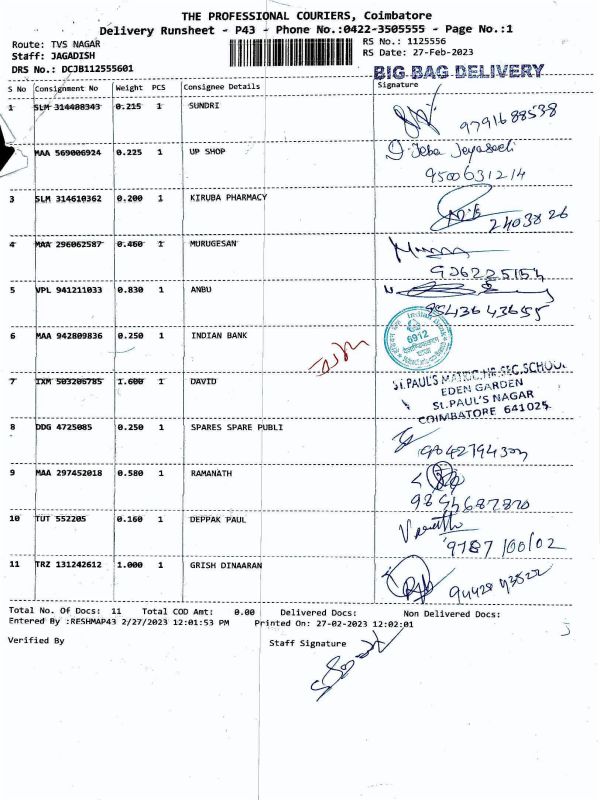 THE PROFESSIONAL COURIERS, Coimbatore
Delivery Runsheet - P43 - Phone No.:0422-3505555 - Page No.:1
Route: TVS NAGAR
Staff: JAGADISH
DRS No.: DCJB112555601
RS No.: 1125556
RS Date: 27-Feb-2023
BIG BAG DELIVERY
S No Consignment No Weight PCS Consignee Details Signature
1 SLM 314488343 0.215 1 SUNDRI
9791688538
MAA 569006924 0.225 1 UP SHOP
9500631214
3 SLM 314610362 0.200 1 KIRUBA PHARMACY
2403826
4 MAA 296062587 0.460 1 MURUGESAN
5 VPL 941211033 0.830 1 ANBU
9543643655
6 MAA 942809836 0.250 1 INDIAN BANK
Indian Bank
6912
7 IXM 503206785 1.600 1 DAVID
St.PAUL'S MATRIC.HR.SEC.SCHOOL
EDEN GARDEN
St.PAUL'S NAGAR
COIMBATORE 641025
8 DDG 4725085 0.250 1 SPARES SPARE PUBLI
9 MAA 297452018 0.580 1 RAMANATH
10 TUT 552205 0.160 1 DEPPAK PAUL
9787 100102
11 TRZ 131242612 1.000 1 GRISH DINAARAN
Total No. Of Docs: 11 Total COD Amt: 0.00 Delivered Docs: Non Delivered Docs:
Entered By :RESHMAP43 2/27/2023 12:01:53 PM Printed On: 27-02-2023 12:02:01
Verified By Staff Signature